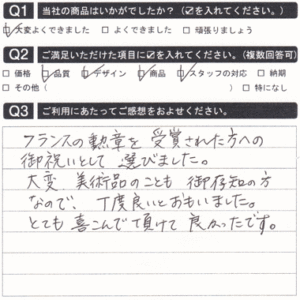 Q1 当社の商品はいかがでしたか？（☑を入れてください。）
☑大変よくできました □よくできました □頑張りましょう
Q2 ご満足いただけた項目に☑を入れてください。（複数回答可）
□価格 ☑品質 ☑デザイン ☑商品 ☑スタッフの対応 □納期
□その他（ ） □特になし
Q3 ご利用にあたってご感想をおよせください。
フランスの勲章を受賞された方への
御祝いとして選びました。
大変 美術品のことも 御存知の方
なので、丁度良いとおもいました。
とても喜こんで頂けて良かったです。